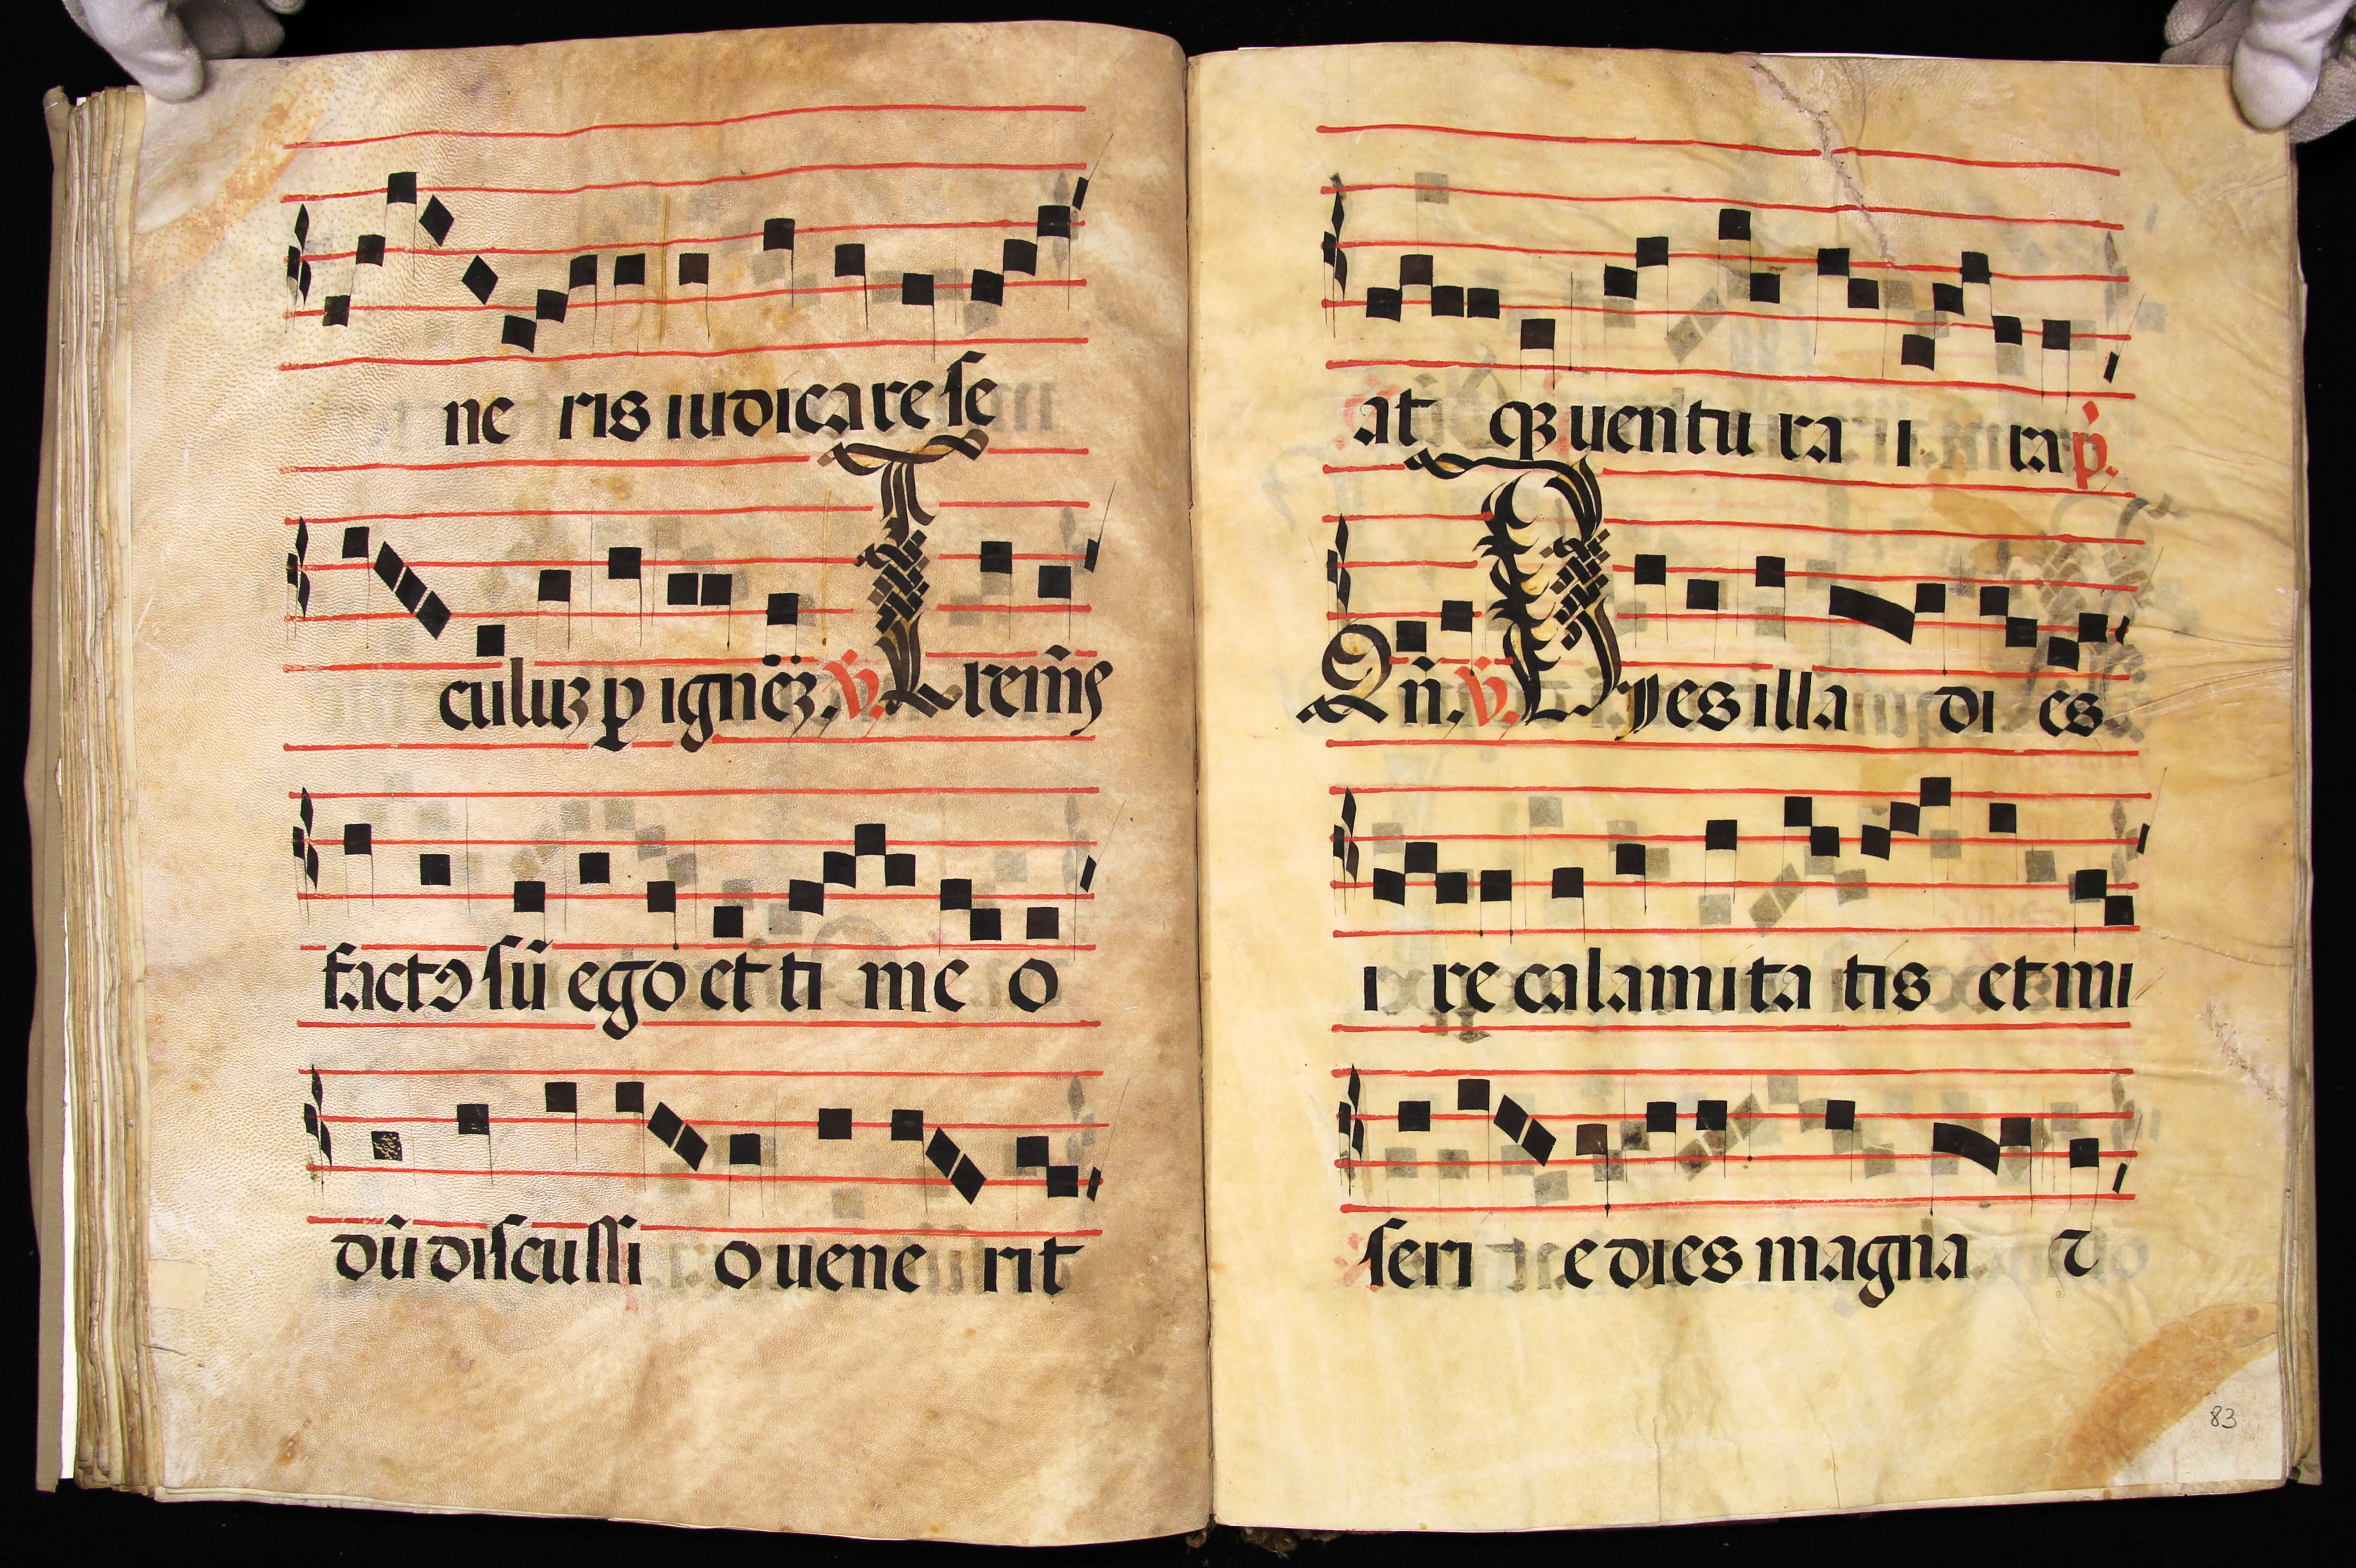 ne ris iudicare se
culuz ꝑ ignēz. ℣. Tremēs
factꝰ sū ego et ti me o
dū discussi o uene rit
at qꝫ uentu ra i ra p̃.
Qñ. ℣. Dyes illa di es
i re calamita tis et mi
seri e dies magna ⁊
83